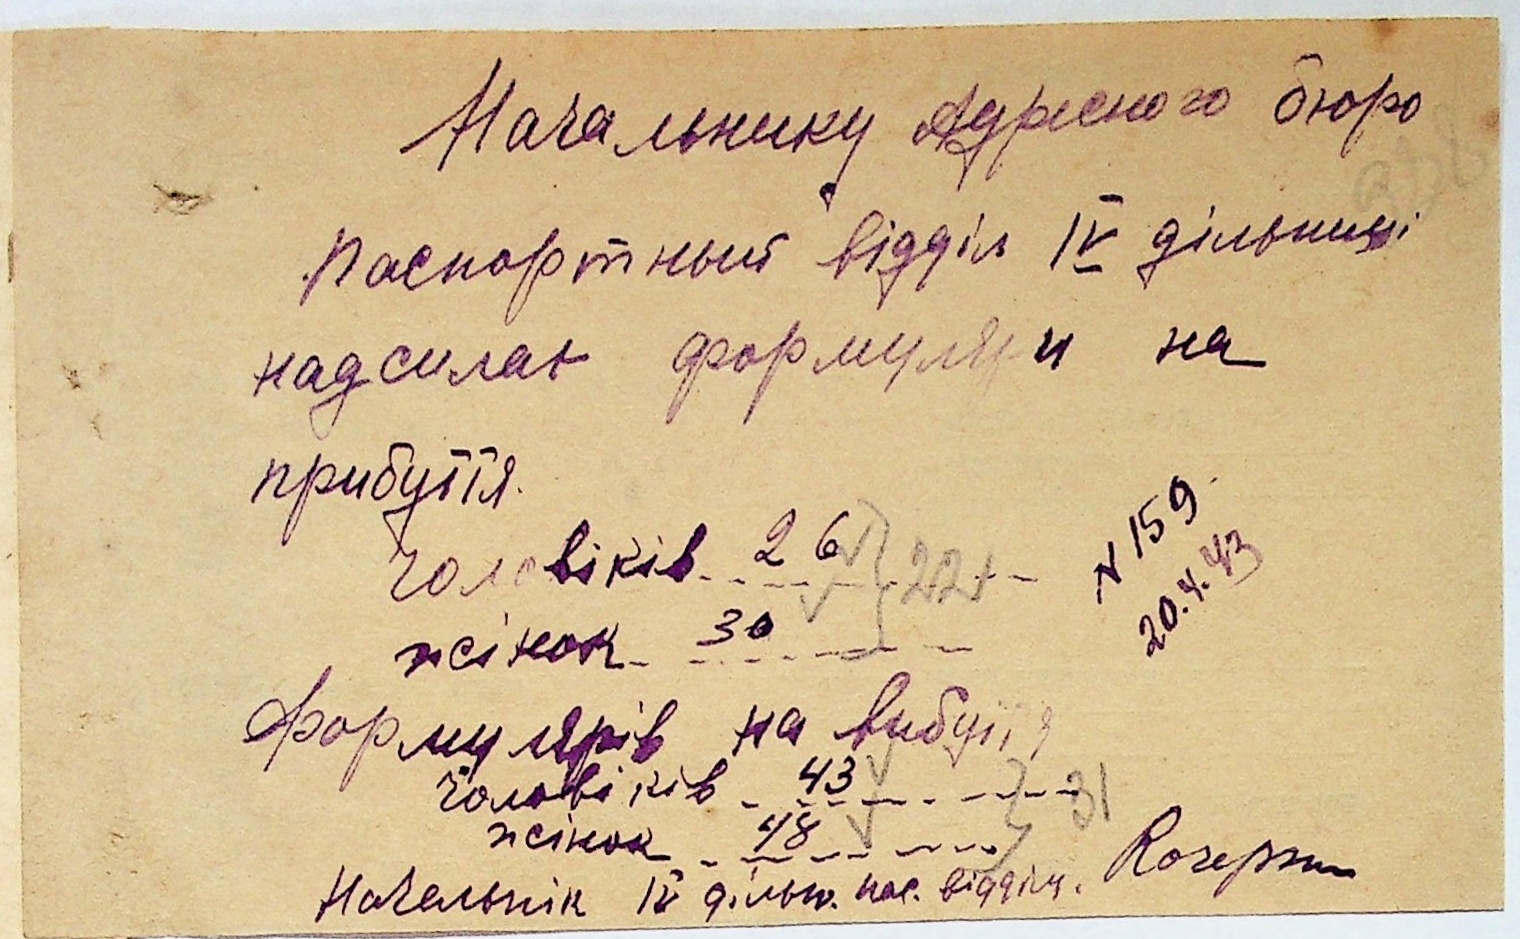 Начальнику Адресного бюро
Паспортный відділ IV дільниці
надсилає формуляри на
прибуття.
Чоловіків 26 22+
жінок 30
N 159
20.4.43
Формулярів на вибуття
Чоловіків 43 31
жінок 48
Начальнік IV дільн. пас. відділу.